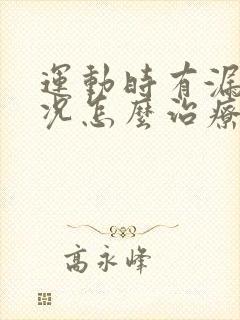 運動時有漏
況怎麼治療
高永峰